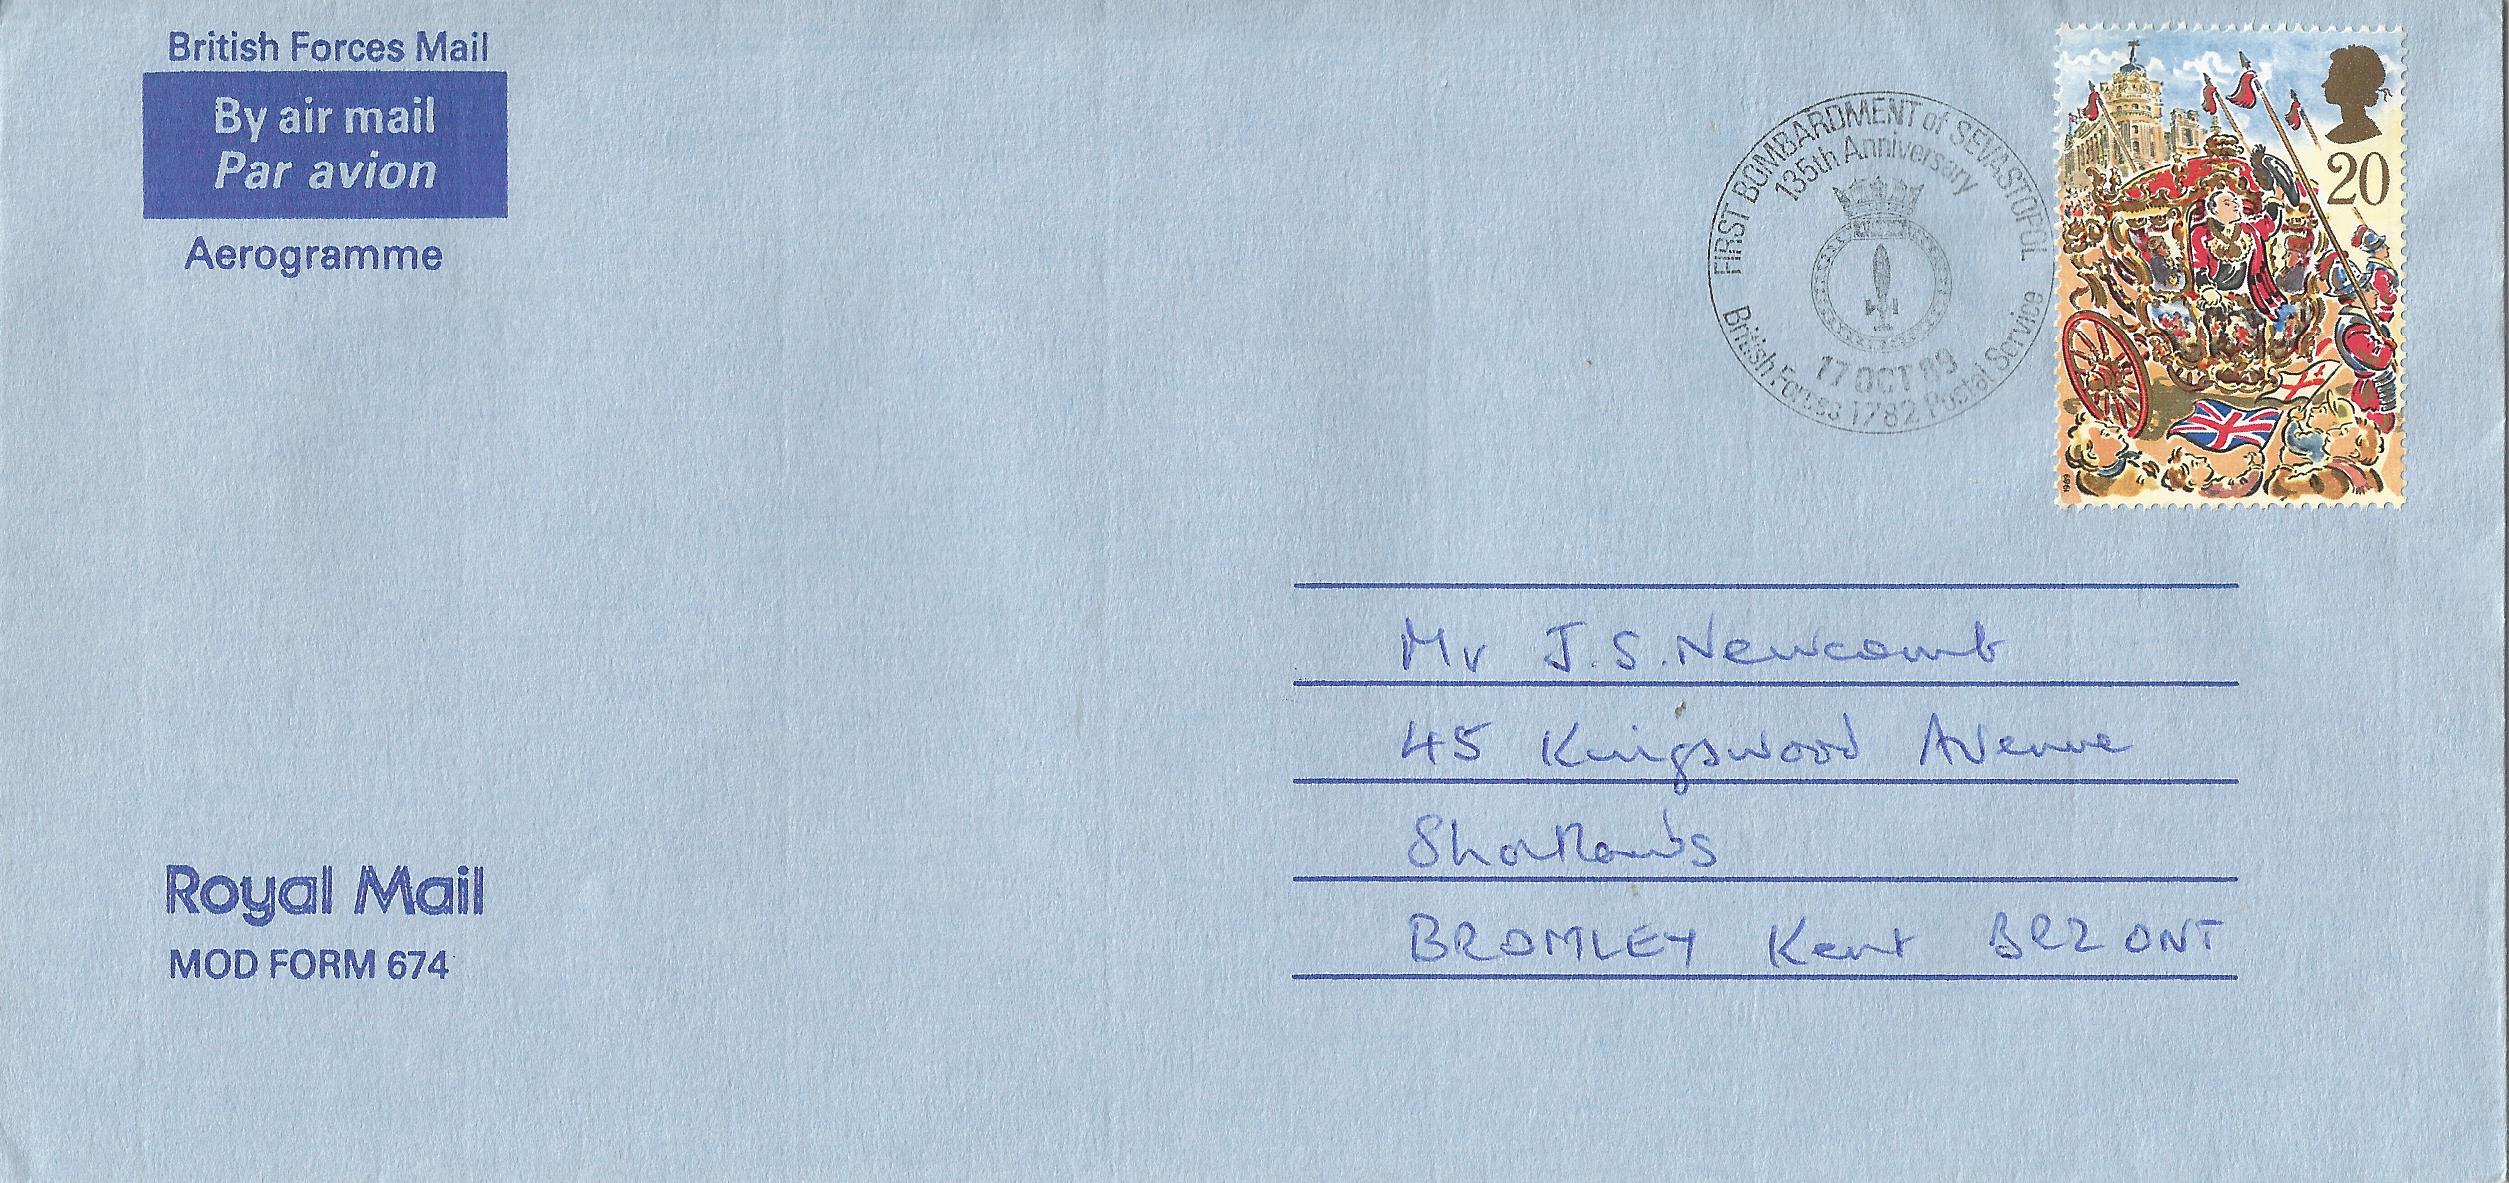 British Forces Mail
By air mail
Par avion
Aerogramme
FIRST BOMBARDMENT of SEVASTOPUL
135th Anniversary
17 OCT 89
British Forces 1782 Postal Service
20
1989
Mr J.S. Newcomb
45 Kingswood Avenue
Shortlands
BROMLEY Kent BR2 0NT
Royal Mail
MOD FORM 674